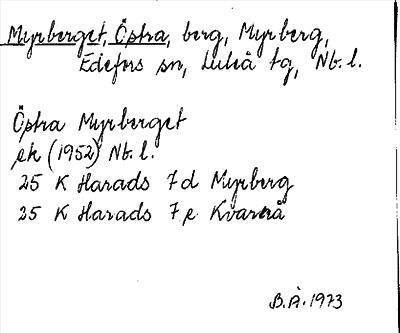 Myrberget, Östra, berg, Myrberg,
Edefors sn, Luleå tg, Nb. l.
Östra Myrberget
ek (1952) Nb. l.
25 K Harads 7 d Myrberg
25 K Harads 7 e Kvarnå
B.Å. 1973